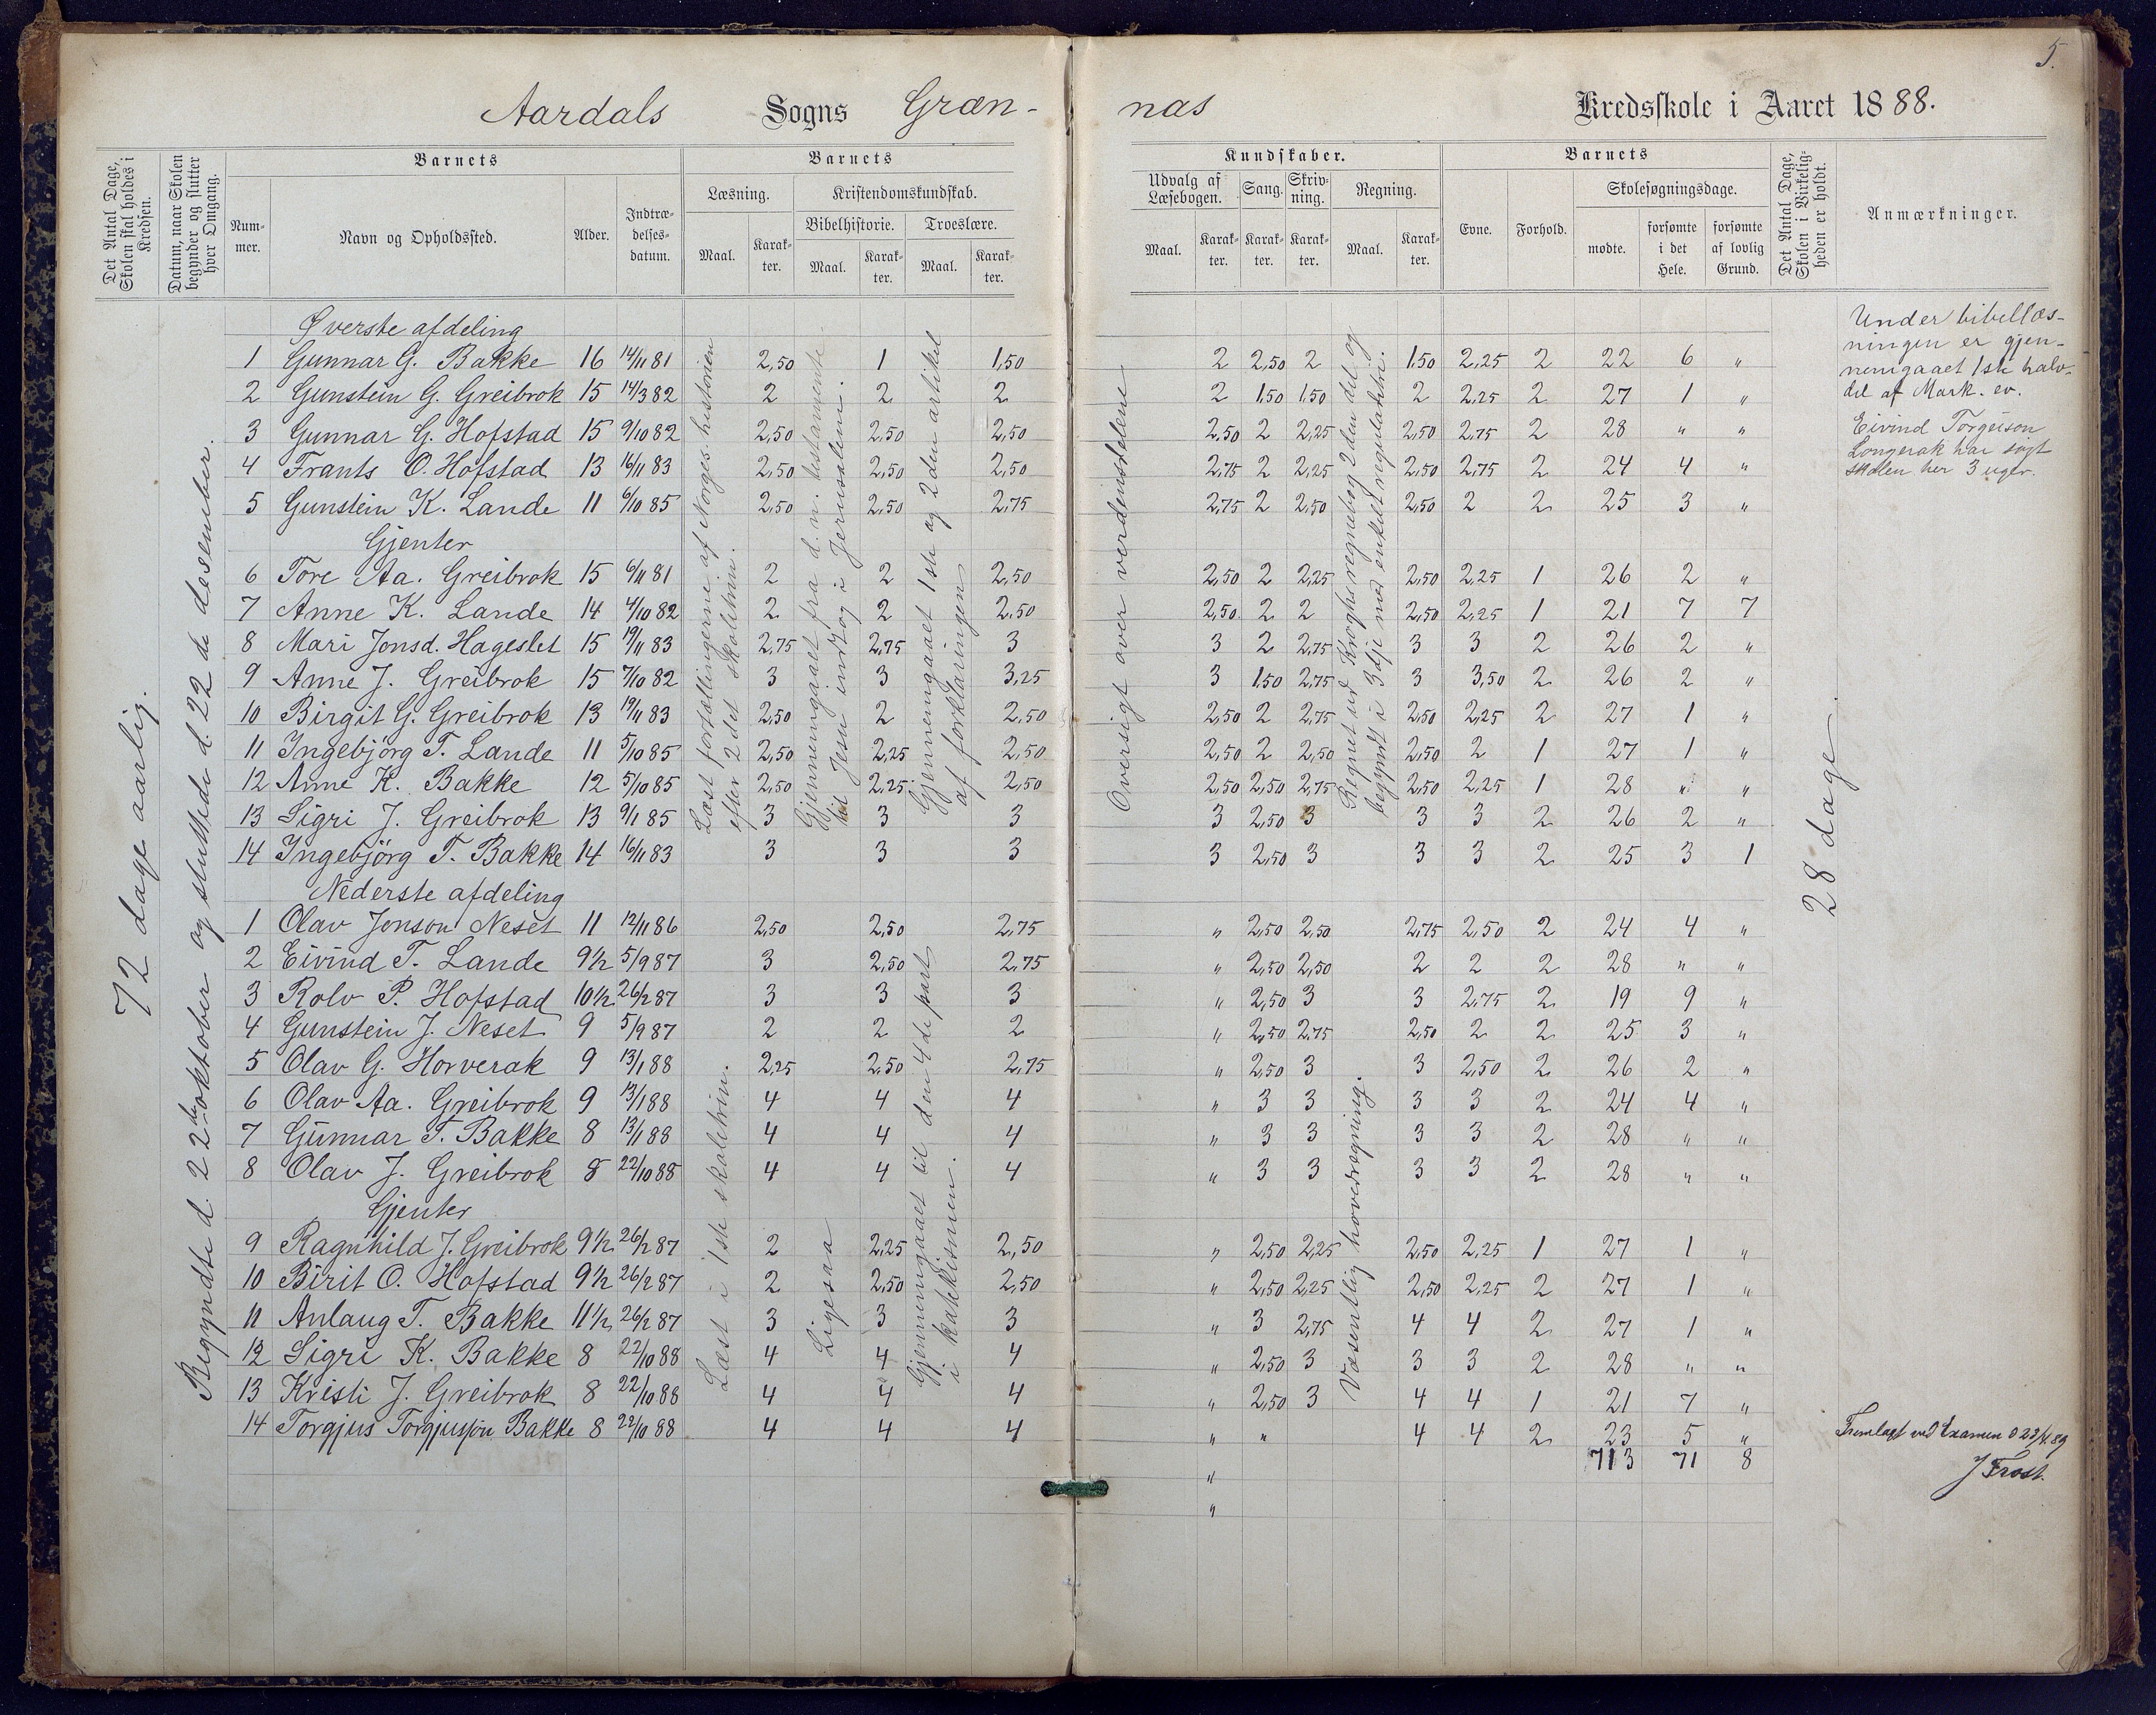 5.
Aardals Sogns Græn- nas Kredsskole i Aaret 1888.
Det Antal Dage, Skolen skal holdes i Kredsen.
Datum, naar Skolen begynder og slutter hver Omgang.
Barnets
Nummer.
Navn og Opholdssted.
Alder.
Indtrædelsesdatum.
Barnets
Læsning.
Maal.
Karakter.
Kristendomskundskab.
Bibelhistorie.
Maal.
Karakter.
Troeslære.
Maal.
Karakter.
Kundskaber.
Udvalg af Læsebogen.
Maal.
Karakter.
Sang.
Karakter.
Skrivning.
Karakter.
Regning.
Maal.
Karakter.
Barnets
Evne.
Forhold.
Skolesøgningsdage.
mødte.
forsømte i det Hele.
forsømte af lovlig Grund.
Det Antal Dage, Skolen i Virkeligheden er holdt.
Anmærkninger.
72 dage aarlig.
Begyndte d. 22de oktober og sluttede d. 22de desember.
Øverste afdeling
1 Gunnar G. Bakke 16 14/11 81 2,50 1 1,50 2 2,50 2 1,50 2,25 2 22 6 "
2 Gunstein G. Greibrok 15 14/3 82 2 2 2 2 1,50 1,50 2 2,25 2 27 1 "
3 Gunnar G. Hofstad 15 9/10 82 2,50 2,50 2,50 2,50 2 2,25 2,50 2,75 2 28 " "
4 Frants O. Hofstad 13 16/11 83 2,50 2,50 2,50 2,75 2 2,25 2,50 2,75 2 24 4 "
5 Gunstein K. Lande 11 6/10 85 2,50 2,50 2,75 2,75 2 2,50 2,50 2 2 25 3 "
Gjenter
6 Tore Aa. Greibrok 15 6/11 81 2 2 2,50 2,50 2 2,25 2,50 2,25 1 26 2 "
7 Anne K. Lande 14 4/10 82 2 2 2,50 2,50 2 2 2,50 2,25 1 21 7 7
8 Mari Jonsd. Hageslet 15 19/11 83 2,75 2,75 3 3 2 2,75 3 3 2 26 2 "
9 Anne J. Greibrok 15 7/10 82 3 3 3,25 3 1,50 2,75 3 3,50 2 26 2 "
10 Birgit G. Greibrok 13 19/11 83 2,50 2 2,50 2,50 2 2,75 2,50 2,25 2 27 1 "
11 Ingebjörg T. Lande 11 5/10 85 2,50 2,25 2,50 2,50 2 2,50 2,50 2 1 27 1 "
12 Anne K. Bakke 12 5/10 85 2,50 2,25 2,50 2,50 2,50 2,75 2,50 2,25 1 28 " "
13 Sigri J. Greibrok 13 9/1 85 3 3 3 3 2,50 3 3 3 2 26 2 "
14 Ingebjörg T. Bakke 14 16/11 83 3 3 3 3 2,50 3 3 3 2 25 3 1
Læst fortællingerne af Norges historien
efter 2det skoletrin.
Gjennemgaaet fra d. n. testamente
til Jesu indtog i Jerusalem.
Gjennemgaaet 1ste og 2den artikel
af forklaringen
Oversigt over verdensdelene
Regnet ud Kroghs regnebog 2den del og
begyndt i 3dje med enkelt regulatetri.
Nederste afdeling
1 Olav Jonson Neset 11 12/11 86 2,50 2,50 2,75 " 2,50 2,50 2,75 2,50 2 24 4 "
2 Eivind T. Lande 9½ 5/9 87 3 2,50 2,75 " 2,50 2,50 2 2 2 28 " "
3 Rolv P. Hofstad 10½ 26/2 87 3 3 3 " 2,50 3 3 2,75 2 19 9 "
4 Gunstein J. Neset 9 5/9 87 2 2 2 " 2,50 2,75 2,50 2 2 25 3 "
5 Olav G. Horverak 9 13/1 88 2,25 2,50 2,75 " 2,50 3 3 2,50 2 26 2 "
6 Olav Aa. Greibrok 9 13/1 88 4 4 4 " 3 3 3 3 2 24 4 "
7 Gunnar T. Bakke 8 13/1 88 4 4 4 " 3 3 3 3 2 28 " "
8 Olav J. Greibrok 8 22/10 88 4 4 4 " 3 3 3 3 2 28 " "
Gjenter
9 Ragnhild J. Greibrok 9½ 26/2 87 2 2,25 2,50 " 2,50 2,25 2,50 2,25 1 27 1 "
10 Birit O. Hofstad 9½ 26/2 87 2 2,50 2,50 " 2,50 2,25 2,50 2,25 2 27 1 "
11 Anlaug T. Bakke 11½ 26/2 87 3 3 3 " 3 2,75 4 4 2 27 1 "
12 Sigri K. Bakke 8 22/10 88 4 4 4 " 2,50 3 3 3 2 28 " "
13 Kristi J. Greibrok 8 22/10 88 4 4 4 " 2,50 3 4 4 1 21 7 "
14 Torgjus Torgjusson Bakke 8 22/10 88 4 4 4 " " 4 4 2 23 5 "
" 713 71 8
"
Læst i 1ste skoletrin.
Ligesaa
Gjennemgaaet til den 4de part
i katekismen.
Væsentlig hovedregning.
28 dage
Under bibellæs-
ningen er gjen-
nemgaaet 1ste halv-
del af Mark. ev.
Eivind Torgeison
Longerak har søgt
skolen her 3 uger.
Fremlagt ved Examen d 23/4 89
J Frost.